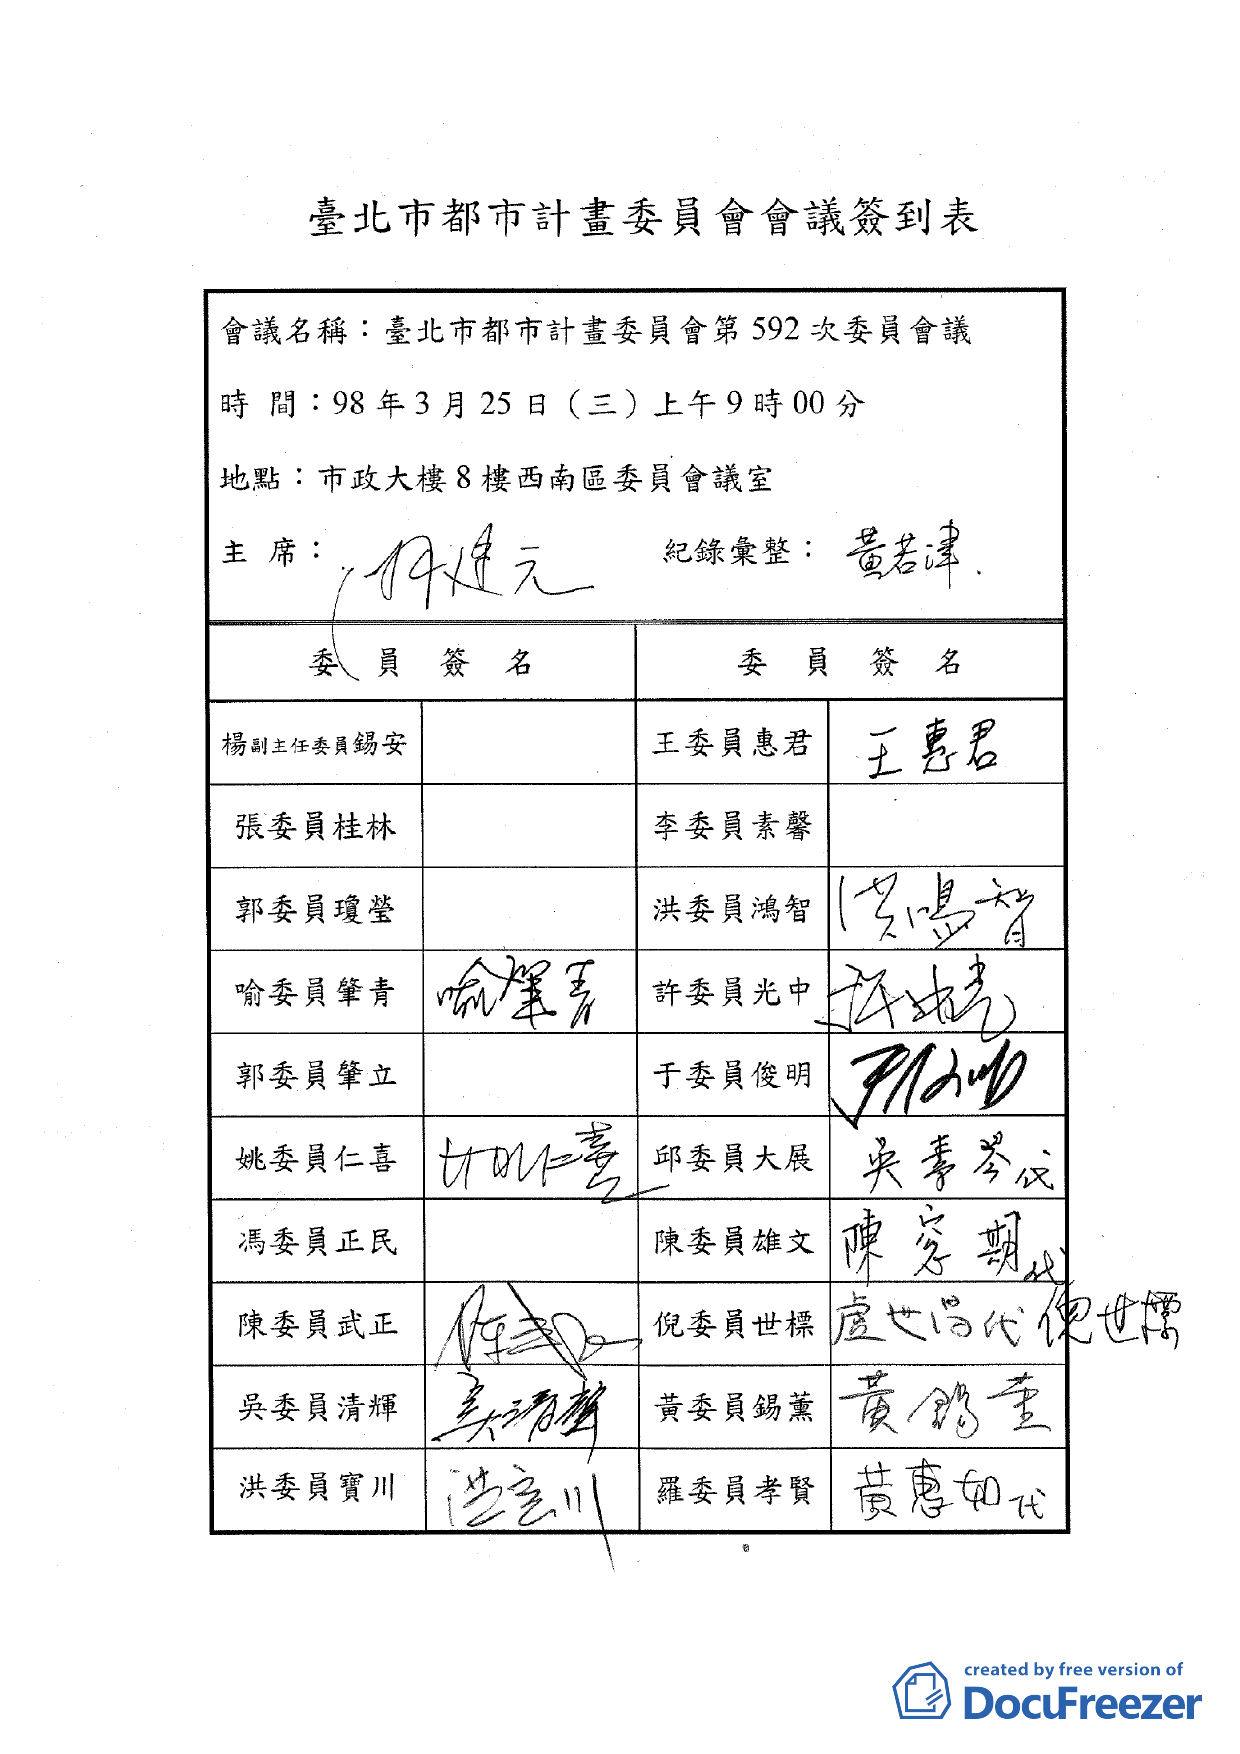 臺北市都市計畫委員會會議簽到表
會議名稱：臺北市都市計畫委員會第 592 次委員會議
時 間：98 年 3 月 25 日（三）上午 9 時 00 分
地點：市政大樓 8 樓西南區委員會議室
主 席： 紀錄彙整： 黃若津
委 員 簽 名 委 員 簽 名
楊副主任委員錫安 王委員惠君 王惠君
張委員桂林 李委員素馨
郭委員瓊瑩 洪委員鴻智 洪鴻智
喻委員肇青 喻肇青 許委員光中
郭委員肇立 于委員俊明 于俊明
姚委員仁喜 姚仁喜 邱委員大展 吳素琴代
馮委員正民 陳委員雄文 陳容期代
陳委員武正 陳武正 倪委員世標 盧世昌代 倪世標
吳委員清輝 吳清輝 黃委員錫薰 黃錫薰
洪委員寶川 洪寶川 羅委員孝賢 黃惠如代
created by free version of
DocuFreezer